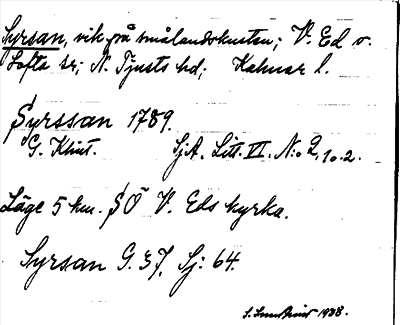 Syrsan, vik på smålandskusten; V. Ed o.
Lofta sr; N. Tjusts hd; Kalmar l.
Syrssan 1789.
G. Klint. SjA. Litt. VI. N:o 2, 10.2.
Läge 5 km. SÖ V. Eds kyrka.
Syrsan G. 37, Sj: 64.
1938.